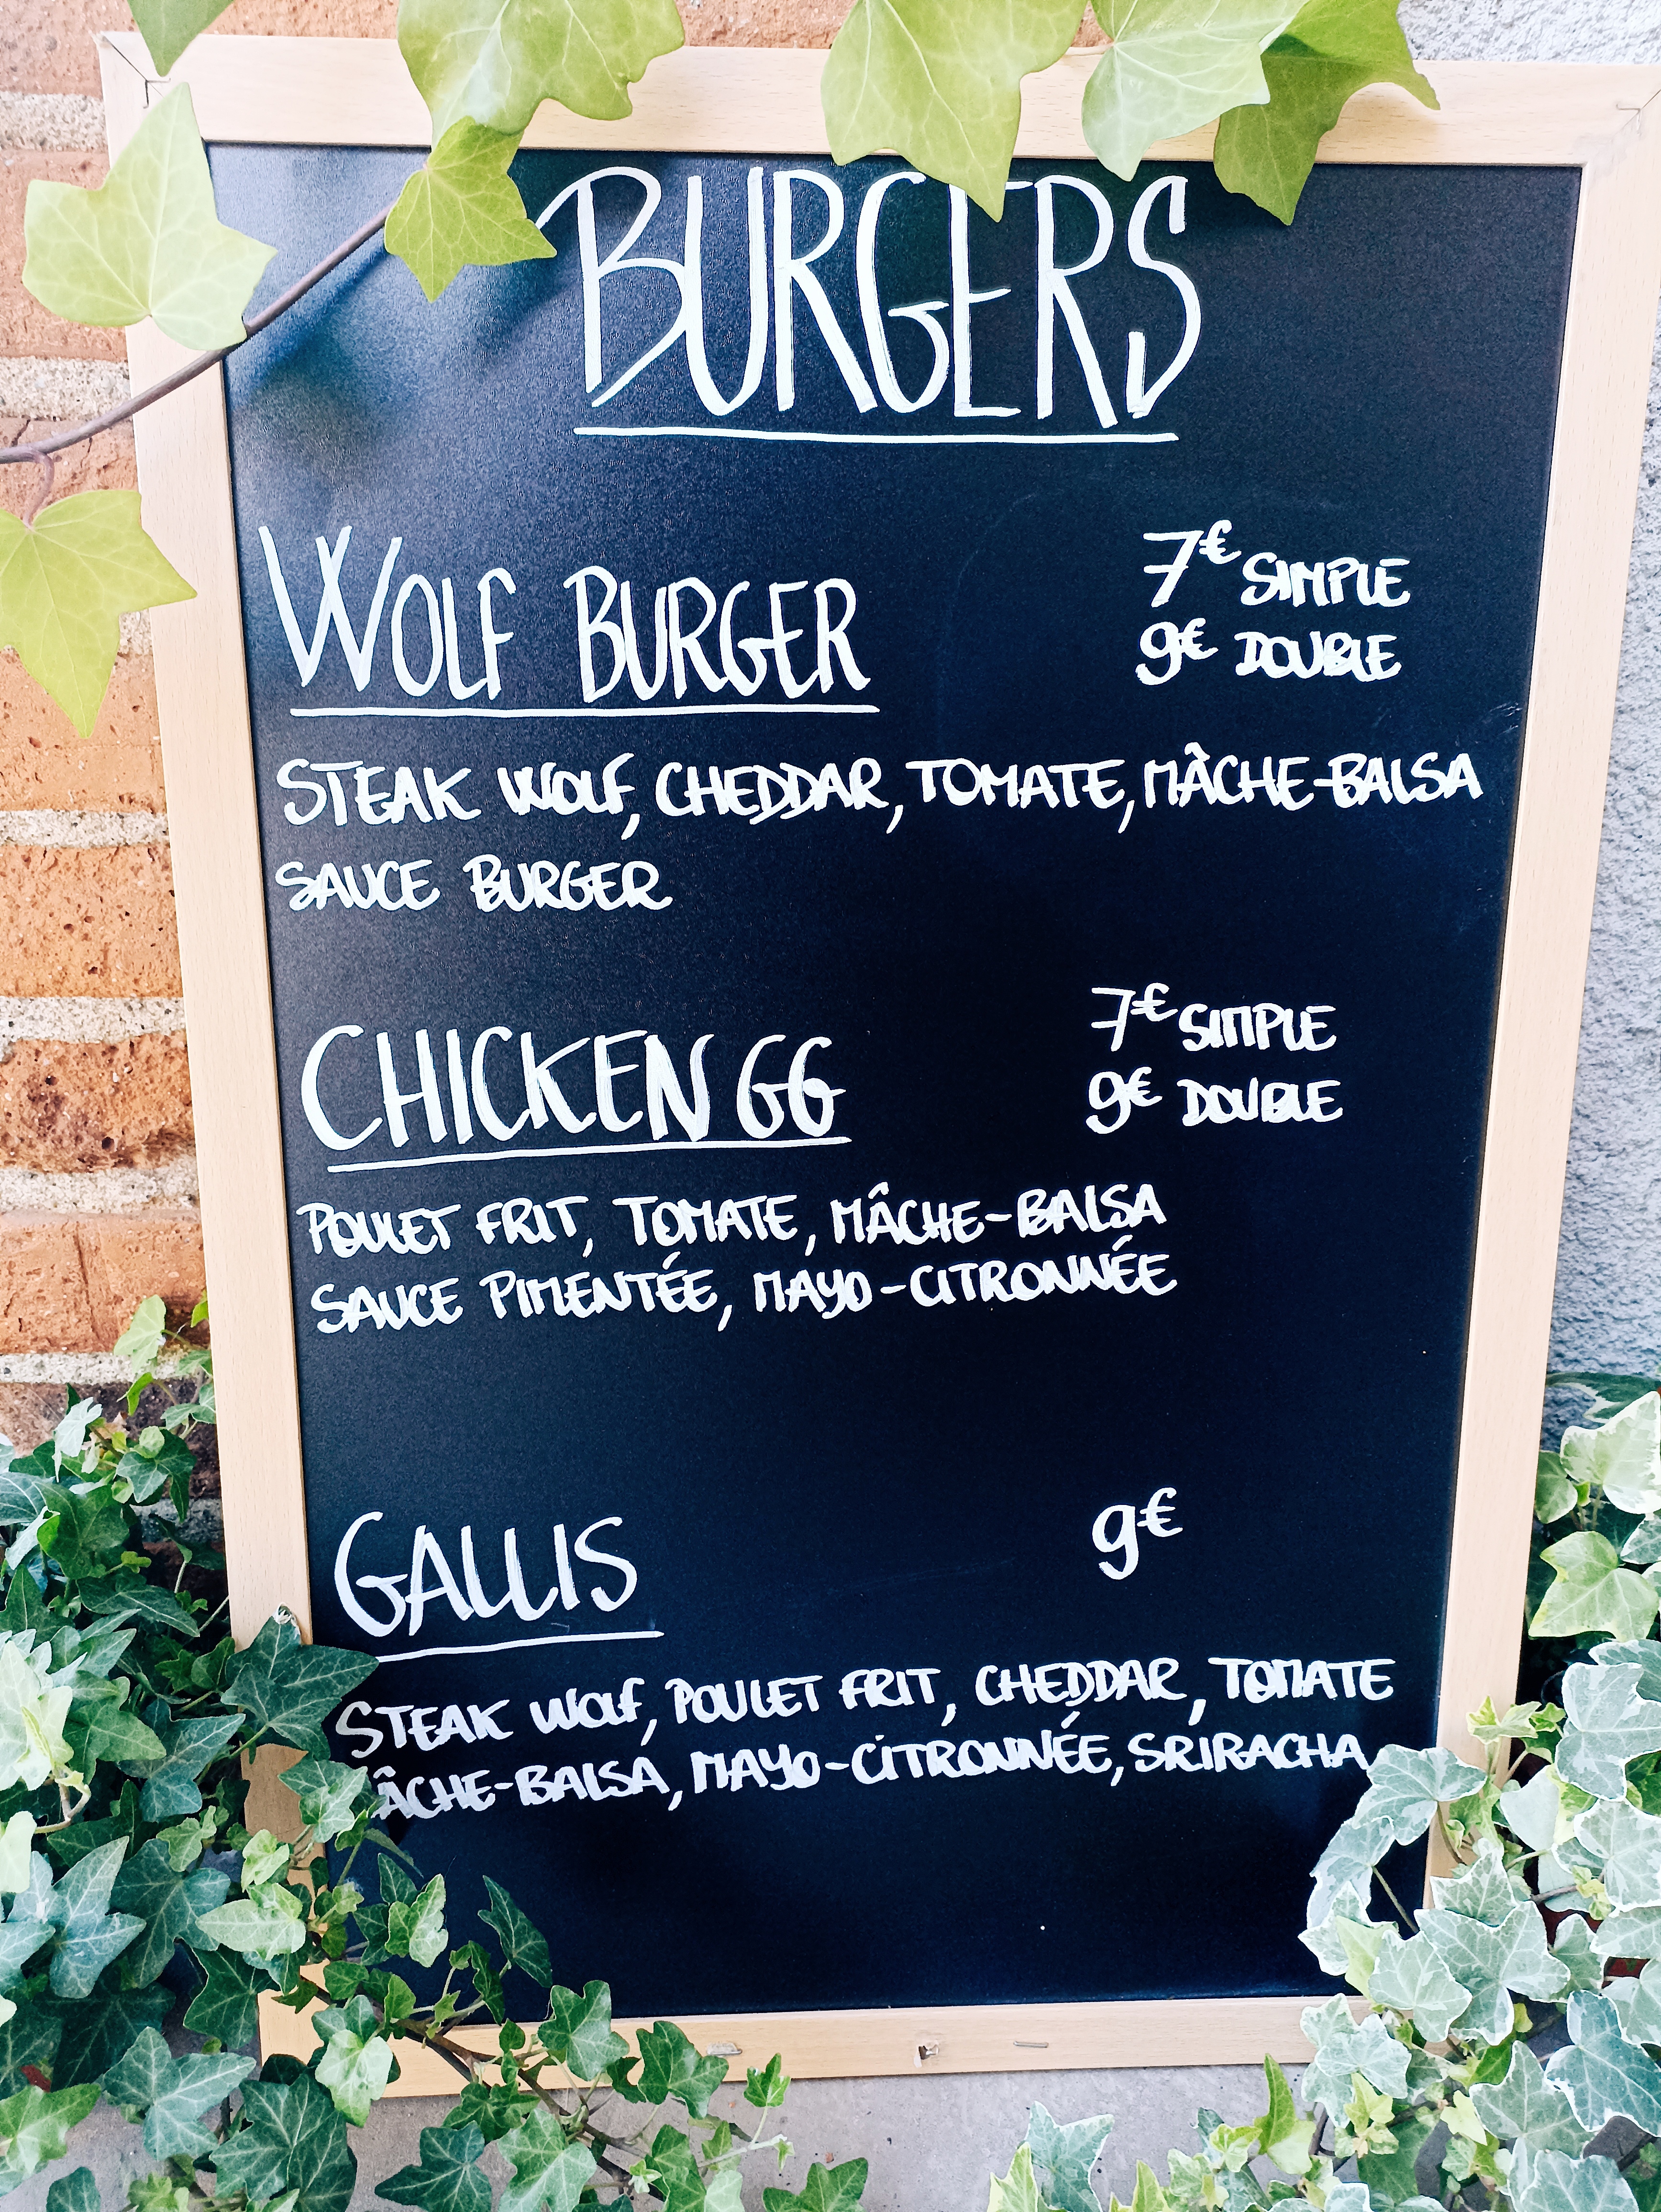 BURGERS
WOLF BURGER
7€ SIMPLE
9€ DOUBLE
STEAK WOLF, CHEDDAR, TOMATE, MÂCHE-BALSA
SAUCE BURGER
CHICKEN GG
7€ SIMPLE
9€ DOUBLE
POULET FRIT, TOMATE, MÂCHE-BALSA
SAUCE PIMENTÉE, MAYO-CITRONNÉE
GALLIS
9€
STEAK WOLF, POULET FRIT, CHEDDAR, TOMATE
ÂCHE-BALSA, MAYO-CITRONNÉE, SRIRACHA